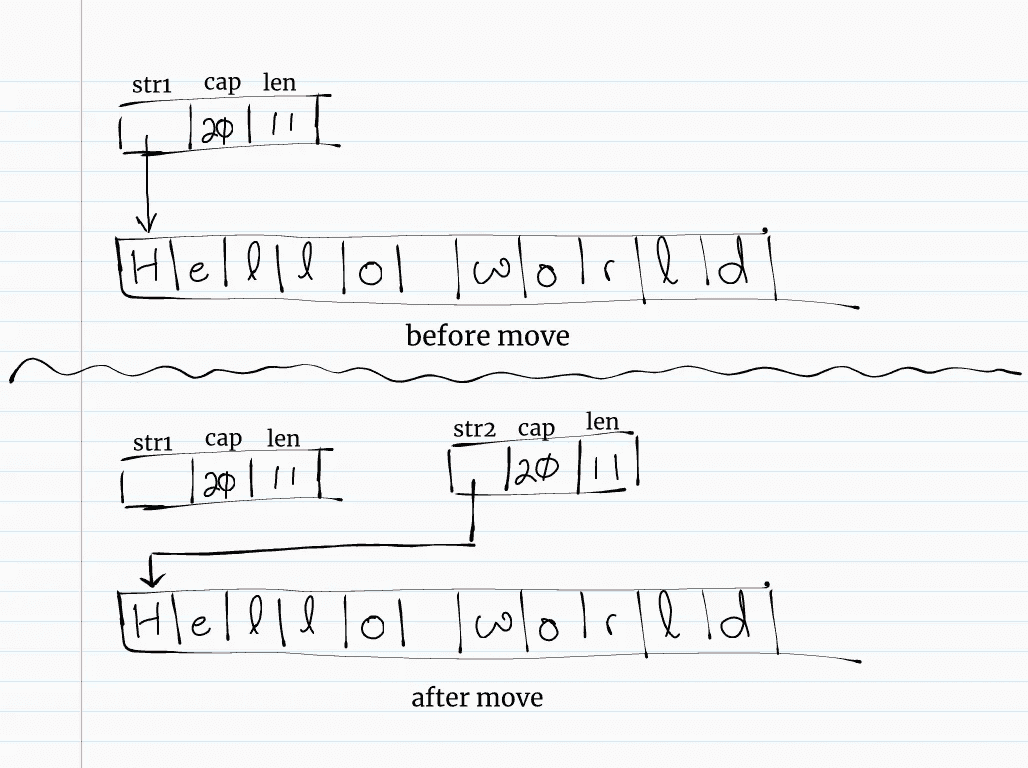 str1 cap len
20 11
Hello world
before move
str1 cap len str2 cap len
20 11 20 11
Hello world
after move